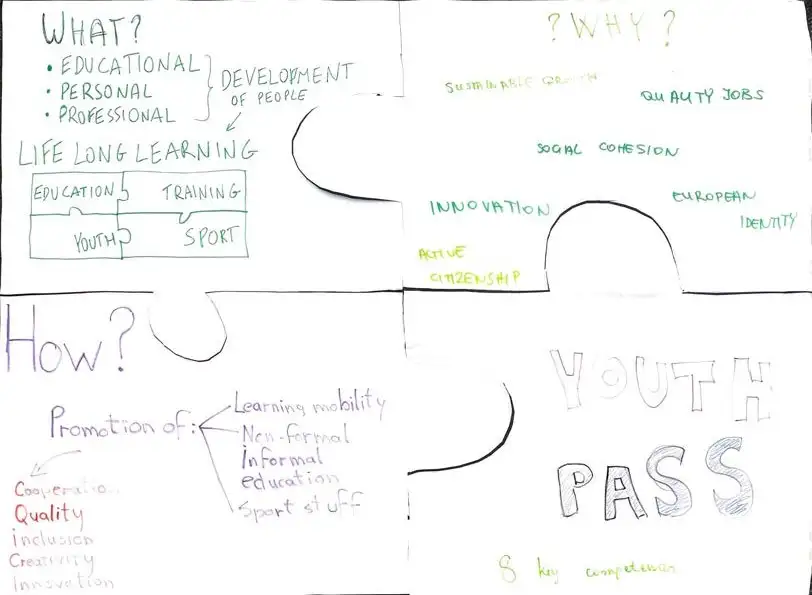 WHAT?
• EDUCATIONAL
• PERSONAL
• PROFESSIONAL
DEVELOPMENT
OF PEOPLE
LIFE LONG LEARNING
EDUCATION TRAINING
YOUTH SPORT
? WHY ?
SUSTAINABLE GROWTH
QUALITY JOBS
SOCIAL COHESION
INNOVATION
EUROPEAN
IDENTITY
ACTIVE
CITIZENSHIP
How?
Promotion of:
Learning mobility
Non-formal
informal
education
Sport stuff
Cooperatio
Quality
inclusion
Creativity
Innovation
YOUTH
PASS
8 key